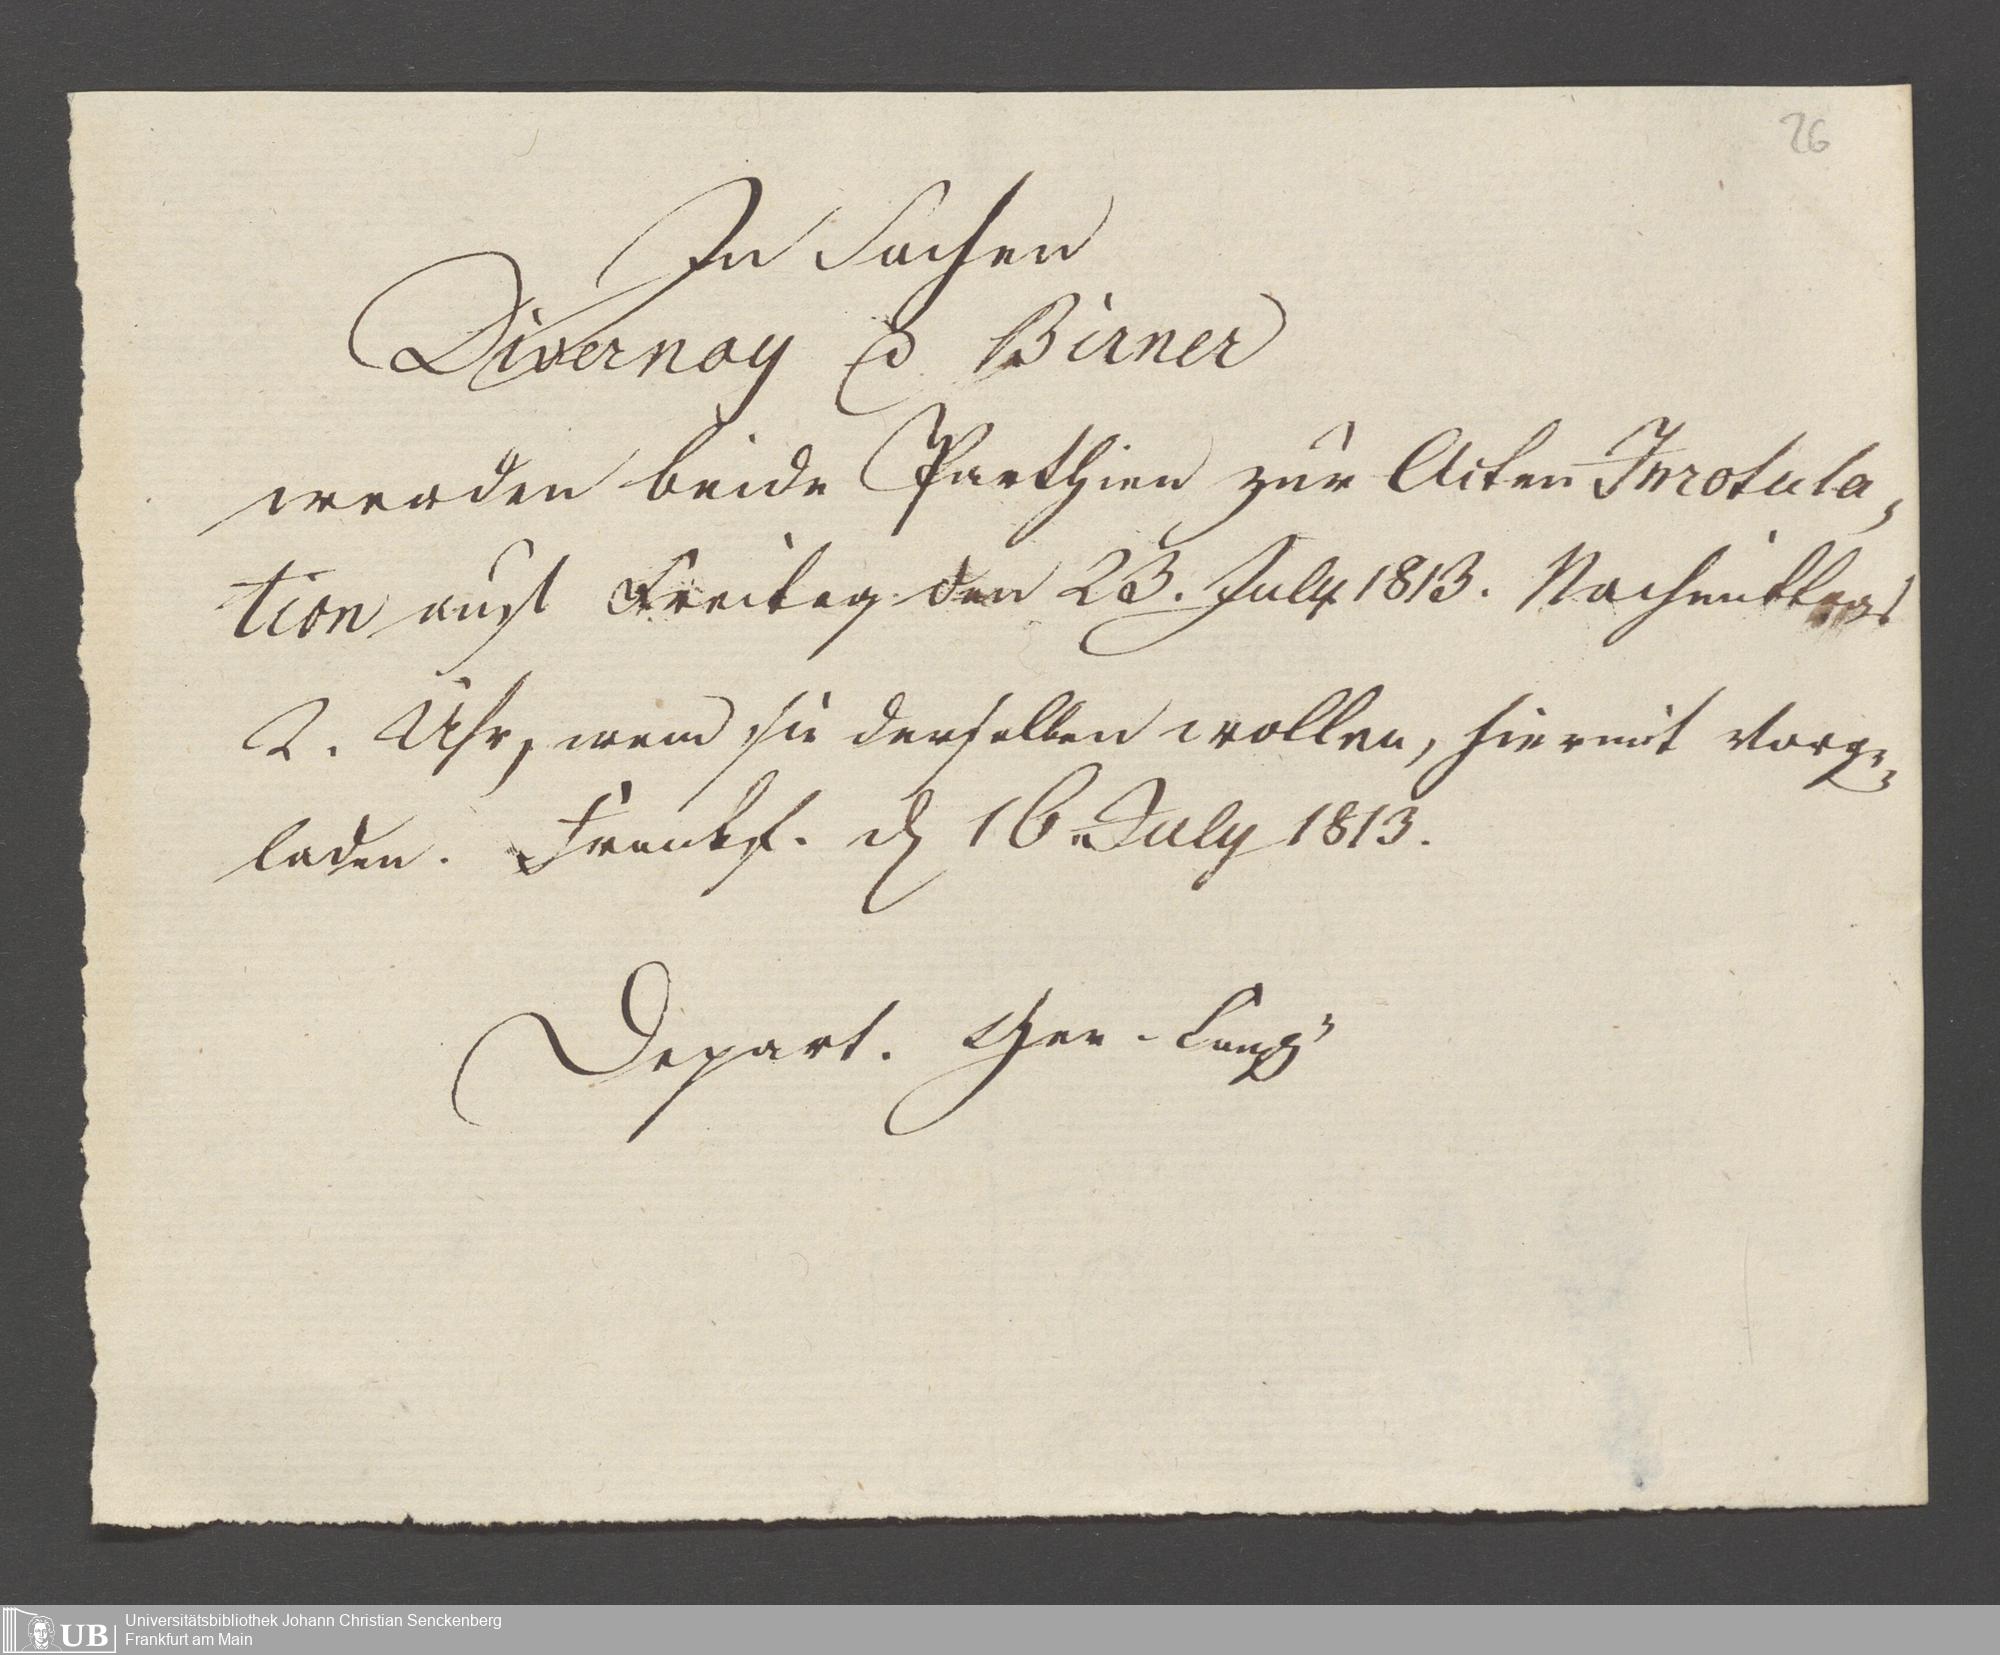 26
In Sachen
Divernoy ca Birner
werden beide Parthien zur Acten Inrotula,
tion auf Freitag den 23. July 1813. Nachmittags
2. Uhr, wenn sie derselben wollen, hiermit vorge,,
laden. Frankf. d 16. July 1813.
Depart. Ger. Canz
Universitätsbibliothek Johann Christian Senckenberg
UB Frankfurt am Main